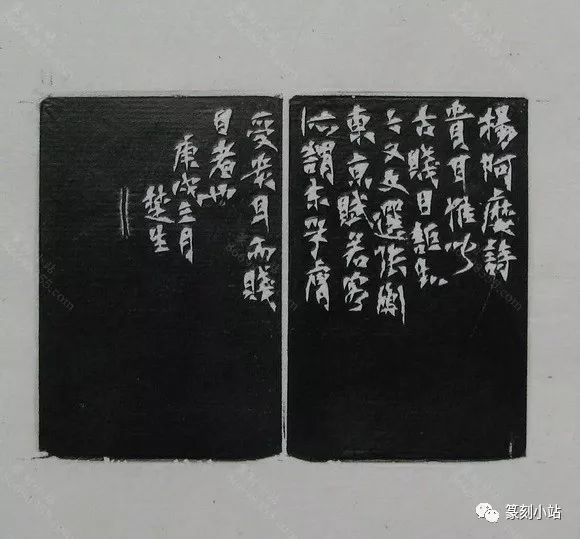 楊阿麼詩
貴耳惟聞
古賤目詎知
今又文選張衡
東京賦若客
所謂末學膚
受貴耳而賤
目者也
庚戌三月
楚生
篆刻小站